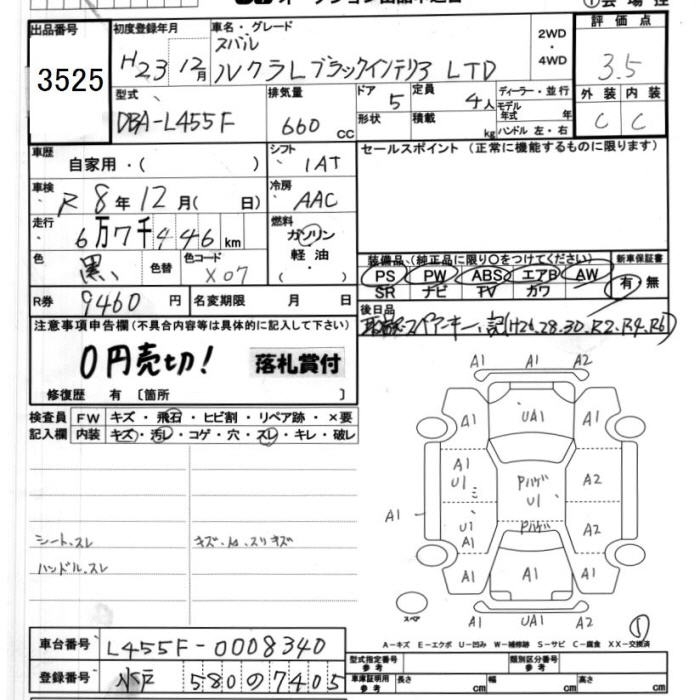 出品番号
3525
初度登録年月
H23 12月
車名・グレード
スバル
ルクラLブラックインテリア LTD
2WD
・
4WD
評価点
3.5
外装 内装
C C
型式
DBA-L455F
排気量
660 cc
ドア 5
定員 4人
形状
積載 kg
ディーラー・並行
モデル年式 年
ハンドル 左・右
車歴
自家用・( )
シフト
1AT
セールスポイント (正常に機能するものに限ります)
車検
R 8年12月( 日)
冷房
AAC
走行
6万7千446km
燃料
ガソリン
軽油
・( )
色
黒
色替
色コード
X07
R券 9460円
名変期限 月 日
装備品 (純正品に限り○をつけてください)
PS PW ABS エアB AW
SR ナビ TV カワ
新車保証書
有・無
後日品
取説・スペアーキー・記(H26.28.30.R2.R4.R6)
注意事項申告欄(不具合内容等は具体的に記入して下さい)
0円売切!
落札賞付
修復歴 有〔箇所 〕
検査員 FW キズ・飛石・ヒビ割・リペア跡・×要
記入欄 内装 キズ・汚レ・コゲ・穴・スレ・キレ・破レ
シート、スレ
ハンドル、スレ
A1 A1
A1 UA1 A2
A1 U1 PハゲU1 A2
A1
U1 A1 Pハゲ A2
A1 A1 A1
A1 UA1 A1
スペア
A－キズ E－エクボ U－凹み W－補修跡 S－サビ C－腐食 XX－交換済
車台番号 L455F-0008340
登録番号 水戸 580 の 7405
型式指定番号 参考
類別区分番号 参考
車庫証明用 参考 長さ cm 幅 cm 高さ cm